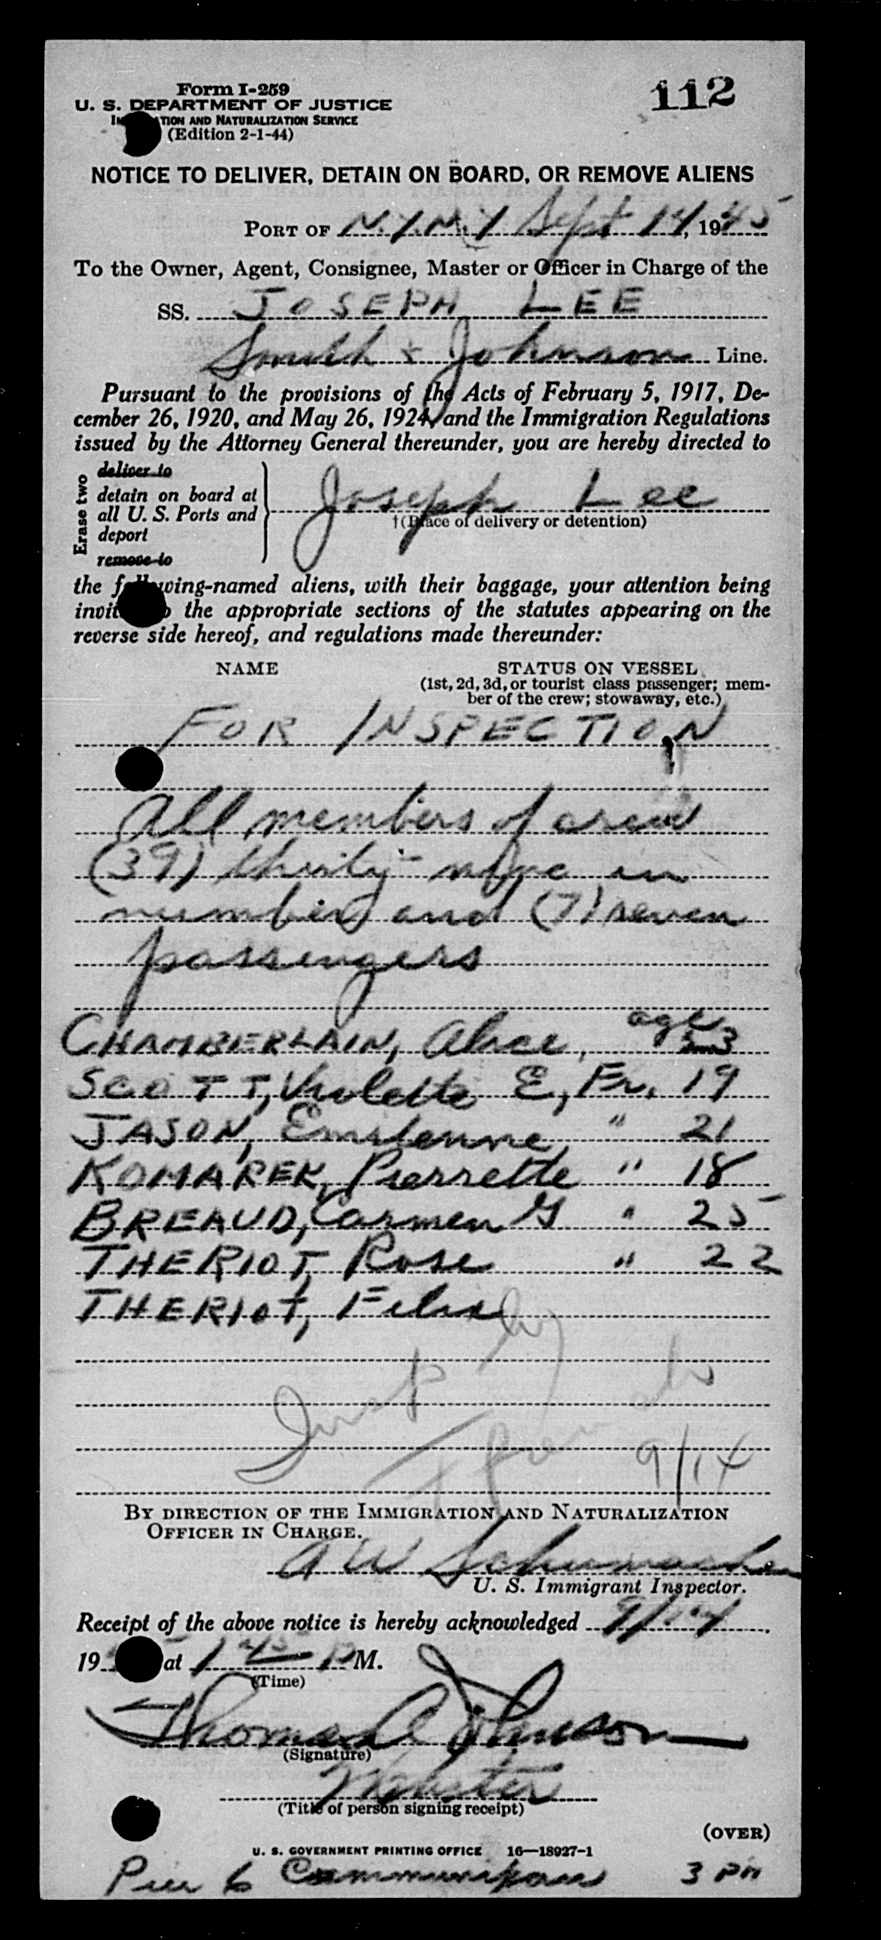 Form I-259
112
U. S. DEPARTMENT OF JUSTICE
IMMIGRATION AND NATURALIZATION SERVICE
(Edition 2-1-44)
NOTICE TO DELIVER, DETAIN ON BOARD, OR REMOVE ALIENS
PORT OF N.Y.N.Y Sept 14, 1945
To the Owner, Agent, Consignee, Master or Officer in Charge of the
SS. JOSEPH LEE
Smith & Johnson Line.
Pursuant to the provisions of the Acts of February 5, 1917, De-
cember 26, 1920, and May 26, 1924, and the Immigration Regulations
issued by the Attorney General thereunder, you are hereby directed to
Erase two
deliver to
detain on board at
all U. S. Ports and
deport
remove to
Joseph Lee
†(Place of delivery or detention)
the following-named aliens, with their baggage, your attention being
invited to the appropriate sections of the statutes appearing on the
reverse side hereof, and regulations made thereunder:
NAME STATUS ON VESSEL
(1st, 2d, 3d, or tourist class passenger; mem-
ber of the crew; stowaway, etc.)
FOR INSPECTION
All members of crew
(39) thirty-nine in
number and (7) seven
passengers
CHAMBERLAIN, Alice, age 23
SCOTT, Violette E, Fr. 19
JASON, Emilienne " 21
KOMAREK, Pierrette " 18
BREAUD, Carmen G " 25
THERIOT, Rose " 22
THERIOT, Felix
Insp by
9/14
BY DIRECTION OF THE IMMIGRATION AND NATURALIZATION
OFFICER IN CHARGE.
A W Schumacher
U. S. Immigrant Inspector.
Receipt of the above notice is hereby acknowledged 9/14,
19 at 1 45 P M.
(Time)
Thomas A Johnson
(Signature)
(Title of person signing receipt)
(OVER)
U. S. GOVERNMENT PRINTING OFFICE 16—18927-1
Pier 6 Communipaw 3 PM